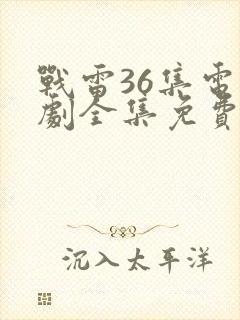 戰雷36集電
劇全集免費
沉入太平洋